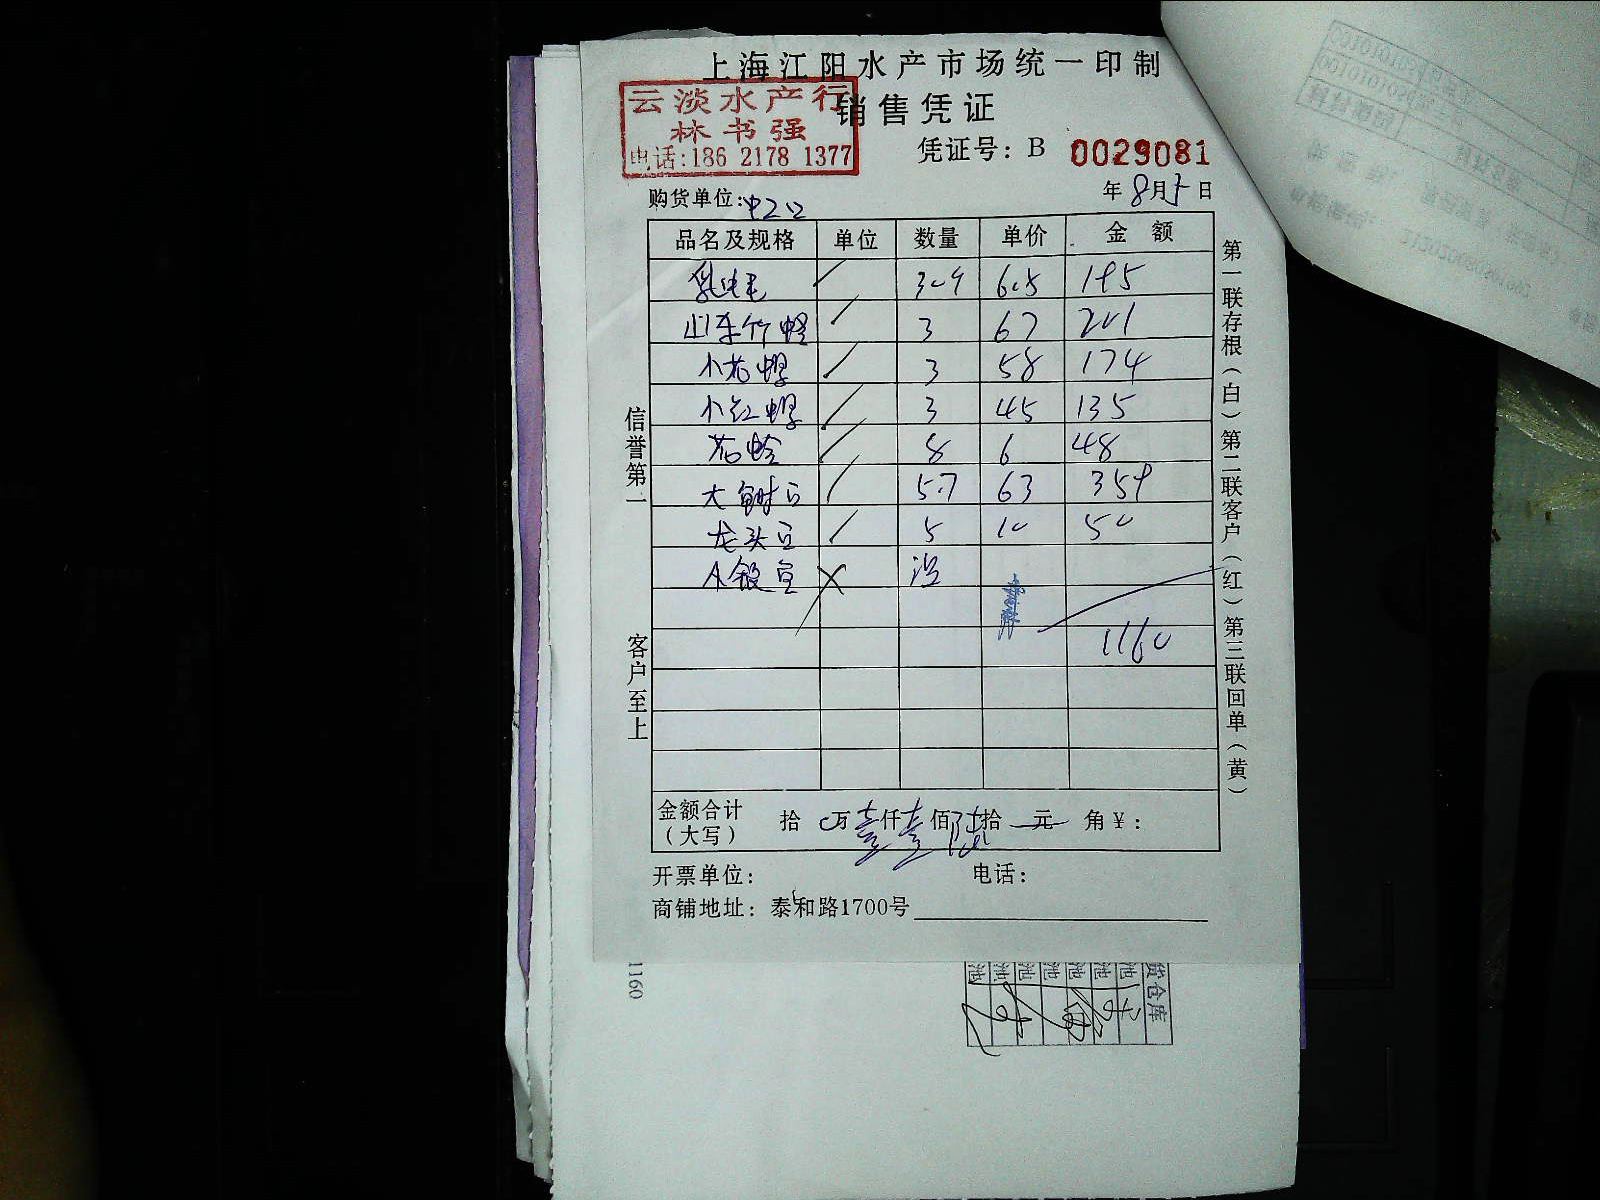 上海江阳水产市场统一印制
云淡水产行
林书强
电话:186 2178 1377
销售凭证
凭证号: B 0029081
年8月5日
购货单位:
品名及规格 单位 数量 单价 金额
195
山东竹蛏 3 67 201
小花螺 3 58 174
小红螺 3 45 135
花蛤 8 6 48
5.7 63 359
龙头 5 10 50
小银鱼 没
1160
金额合计 (大写) 拾 万壹仟壹佰陆拾 元 角¥:
开票单位: 电话:
商铺地址: 泰和路1700号
信誉第一 客户至上
第一联存根(白)第二联客户(红)第三联回单(黄)
1160
货仓库